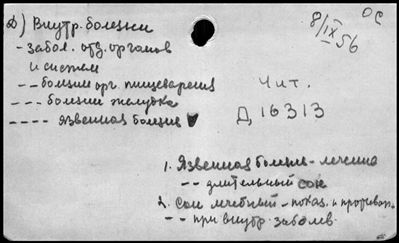 Д) Внутр. болезни
8/IX 56
ОС
- забол. отд. органов
и систем
-- болезни орг. пищеварения
--- болезни желудка
---- язвенная болезнь
Чит.
Д 16313
1. Язвенная болезнь - лечение
-- длительный сон
2. Сон лечебный - показ. и противопок.
-- при внутр. заболев.